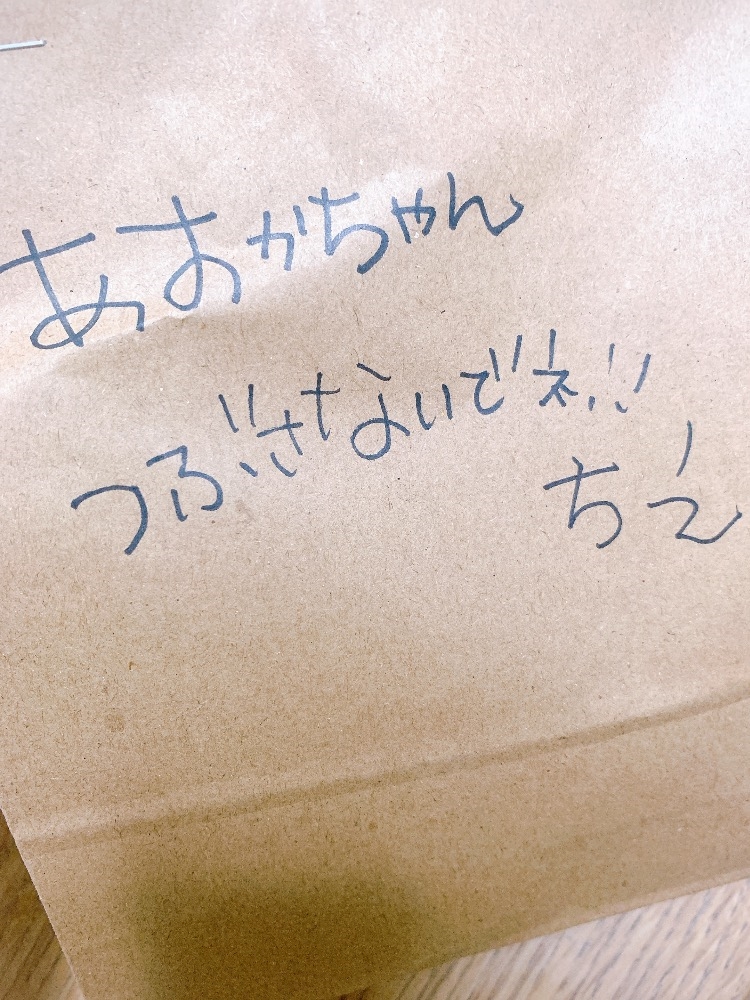 あすかちゃん
つぶさないでネ!!
ちえ